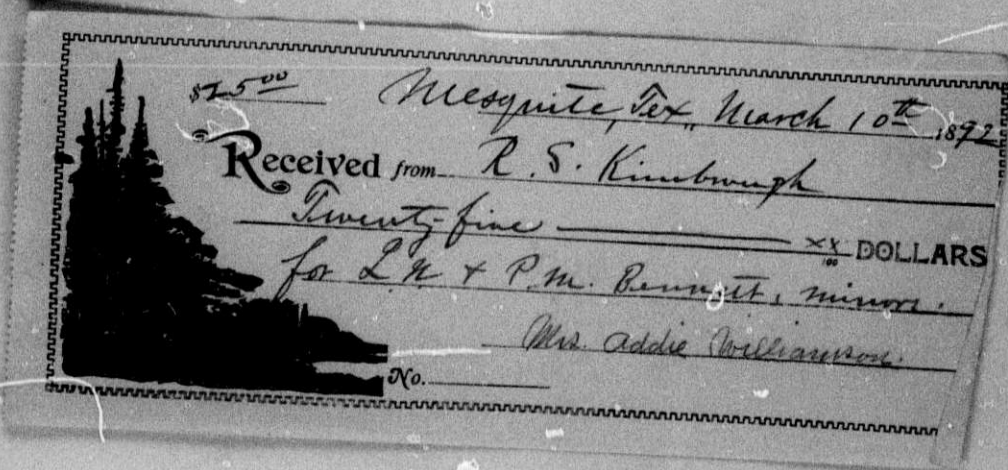 $25.00 Mesquite, Tex, March 10th 1892
Received from R. S. Kimbrough
Twenty-five xx/100 DOLLARS
for L. N. & P. M. Bennett, minors.
Mrs. Addie Williamson.
No.